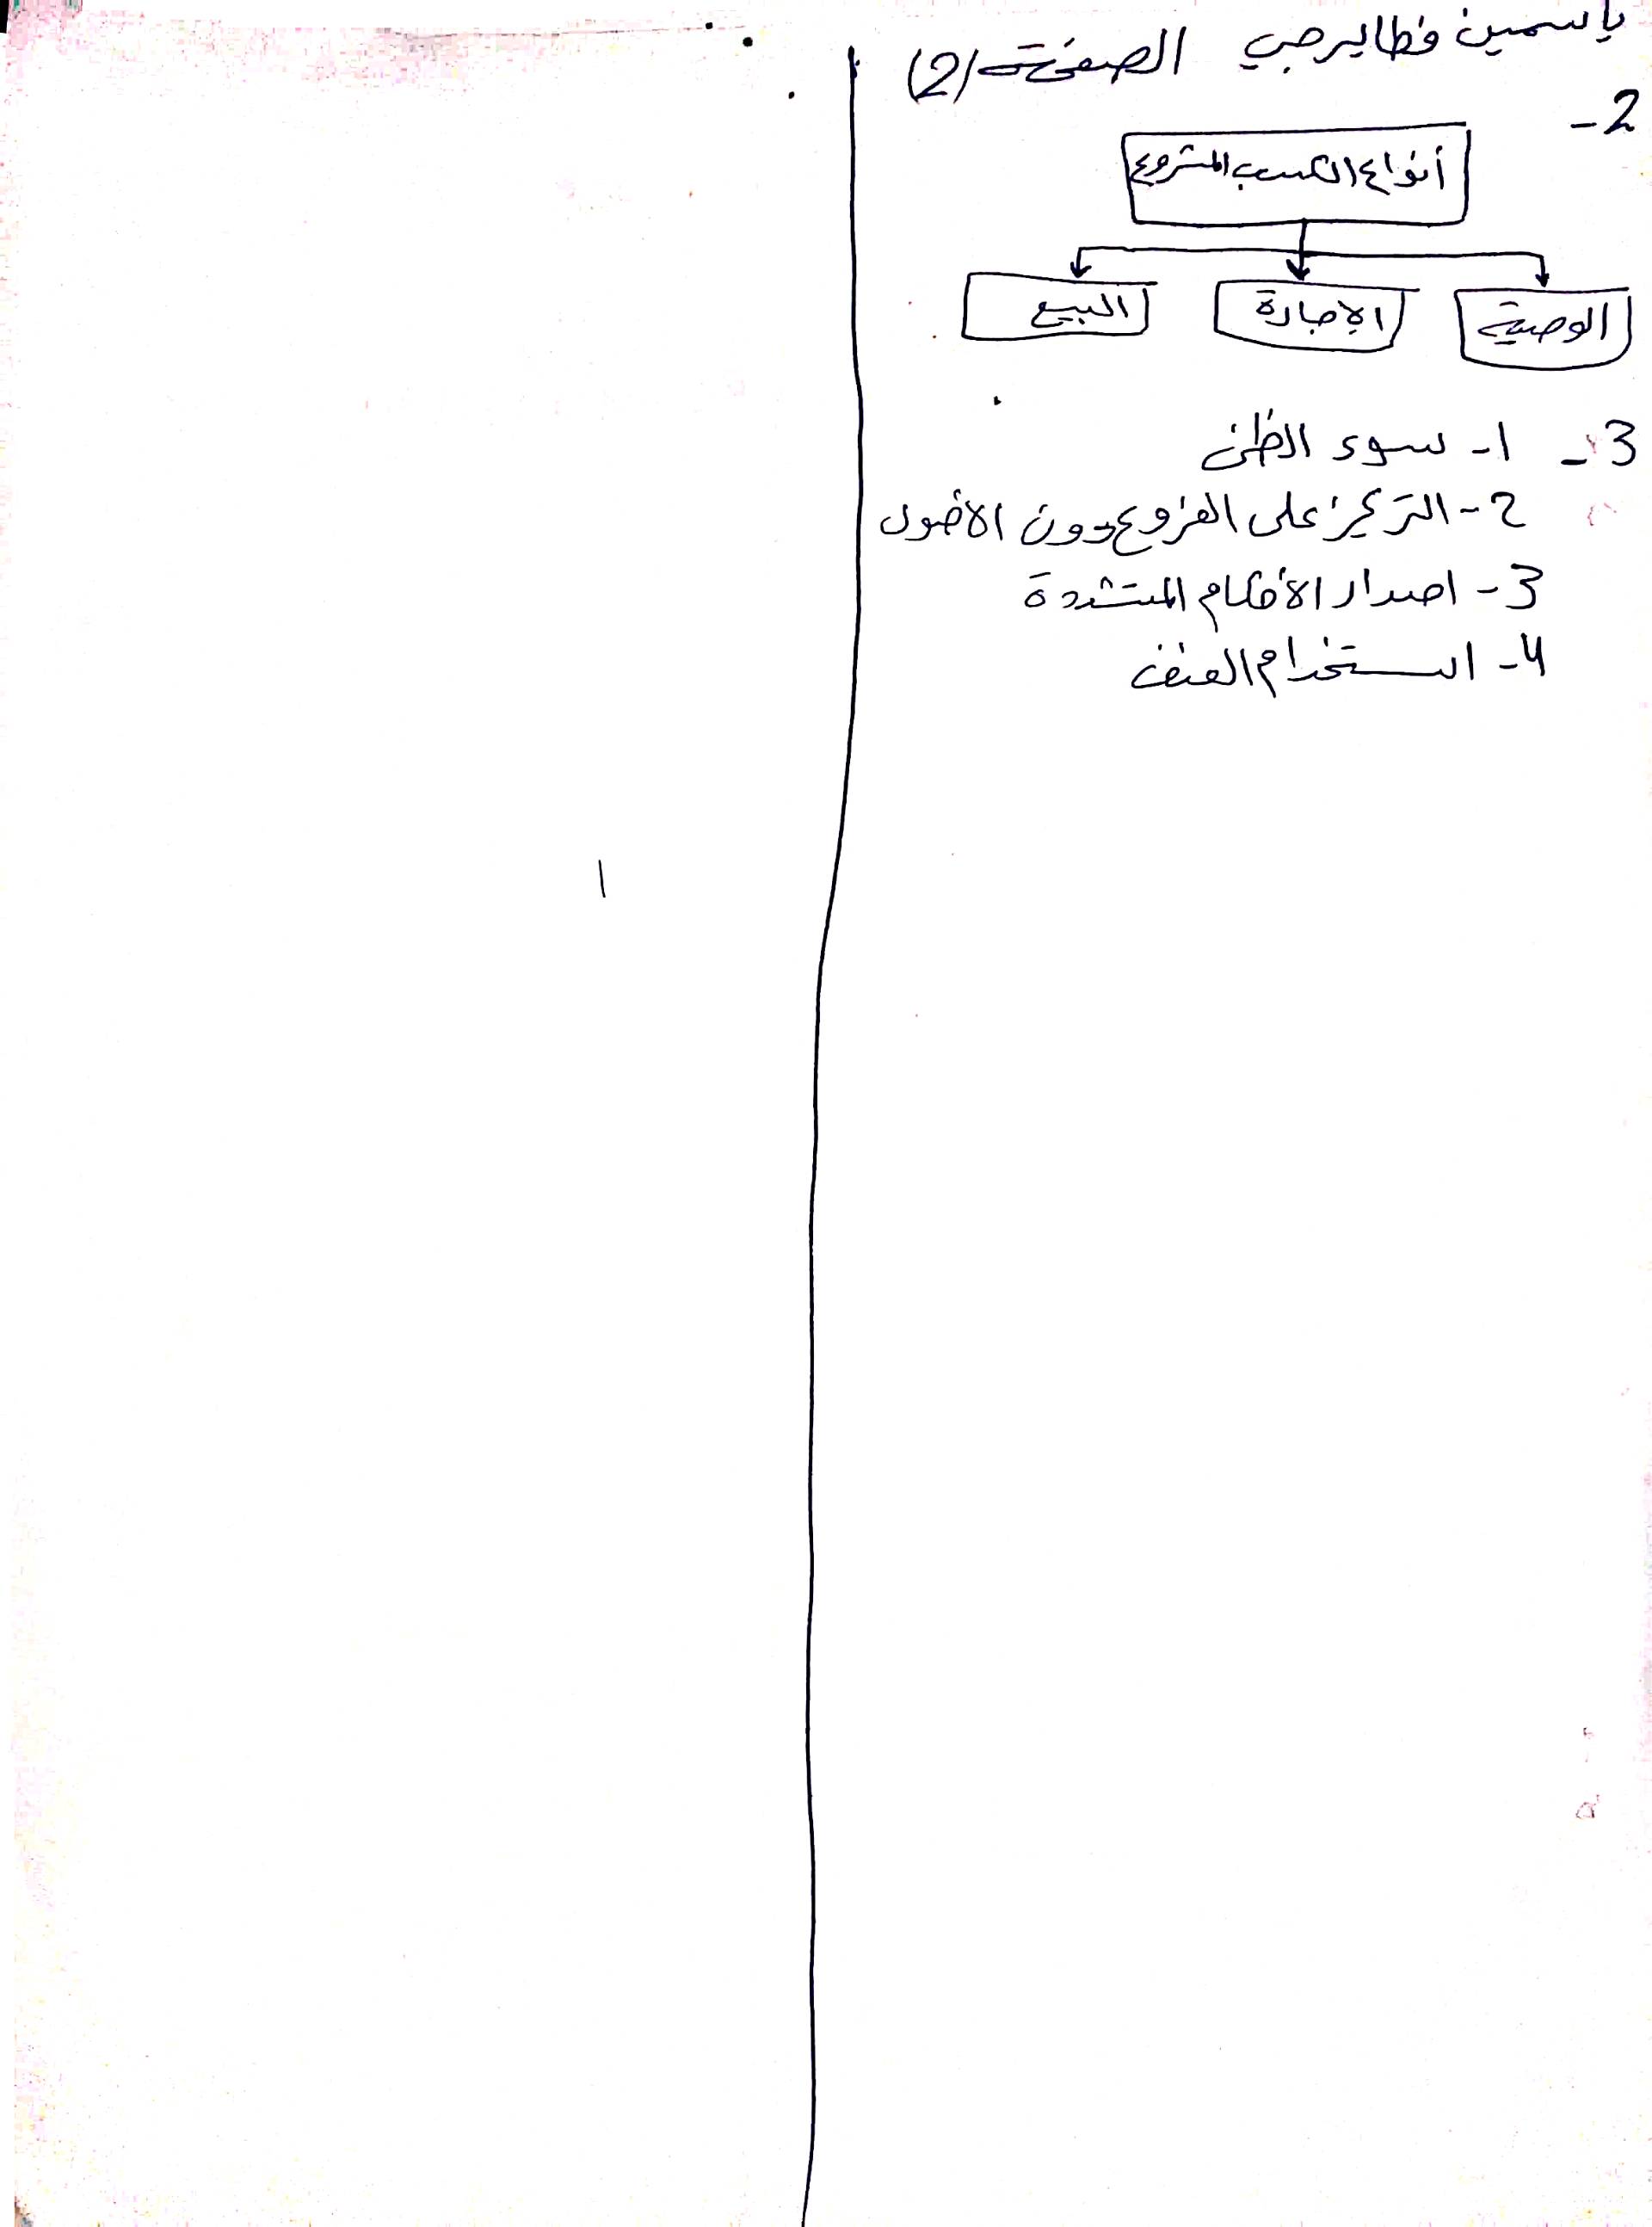 ياسمين فطايرجي الصفحة (2)
2-
أنواع الكسب المشروع
الوصية الإجارة البيع
3- 1- سوء الظن
2- التركيز على الفروع دون الاصول
3- اصدار الأحكام المتشددة
4- استخدام العنف